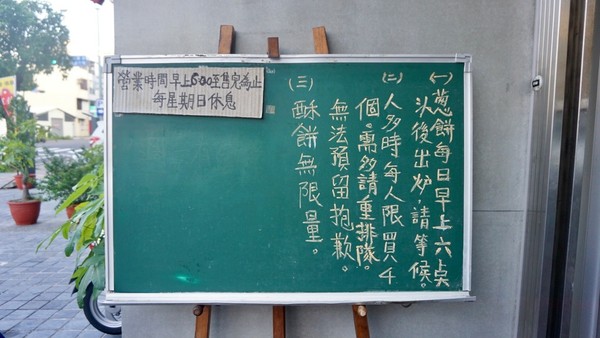 營業時間早上6:00至售完為止
每星期日休息
(一)蔥餅每日早上六点
以後出炉,請等候。
(二)人多時每人限買4
個。需多請重排隊。
無法預留抱歉。
(三)酥餅無限量。